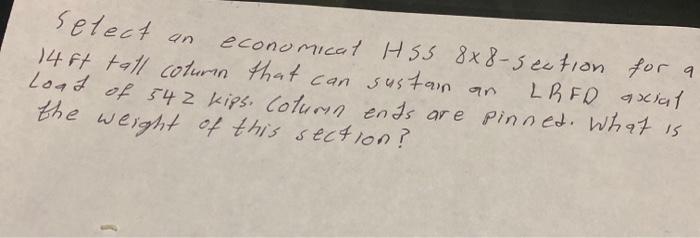 Select an economical HSS 8x8-section for a
14 ft tall column that can sustain an LRFD axial
Load of 542 kips. Column ends are pinned. What is
the weight of this section?